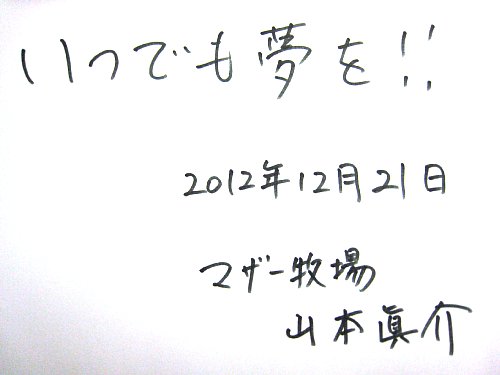 いつでも夢を!!
2012年12月21日
マザー牧場
山本眞介